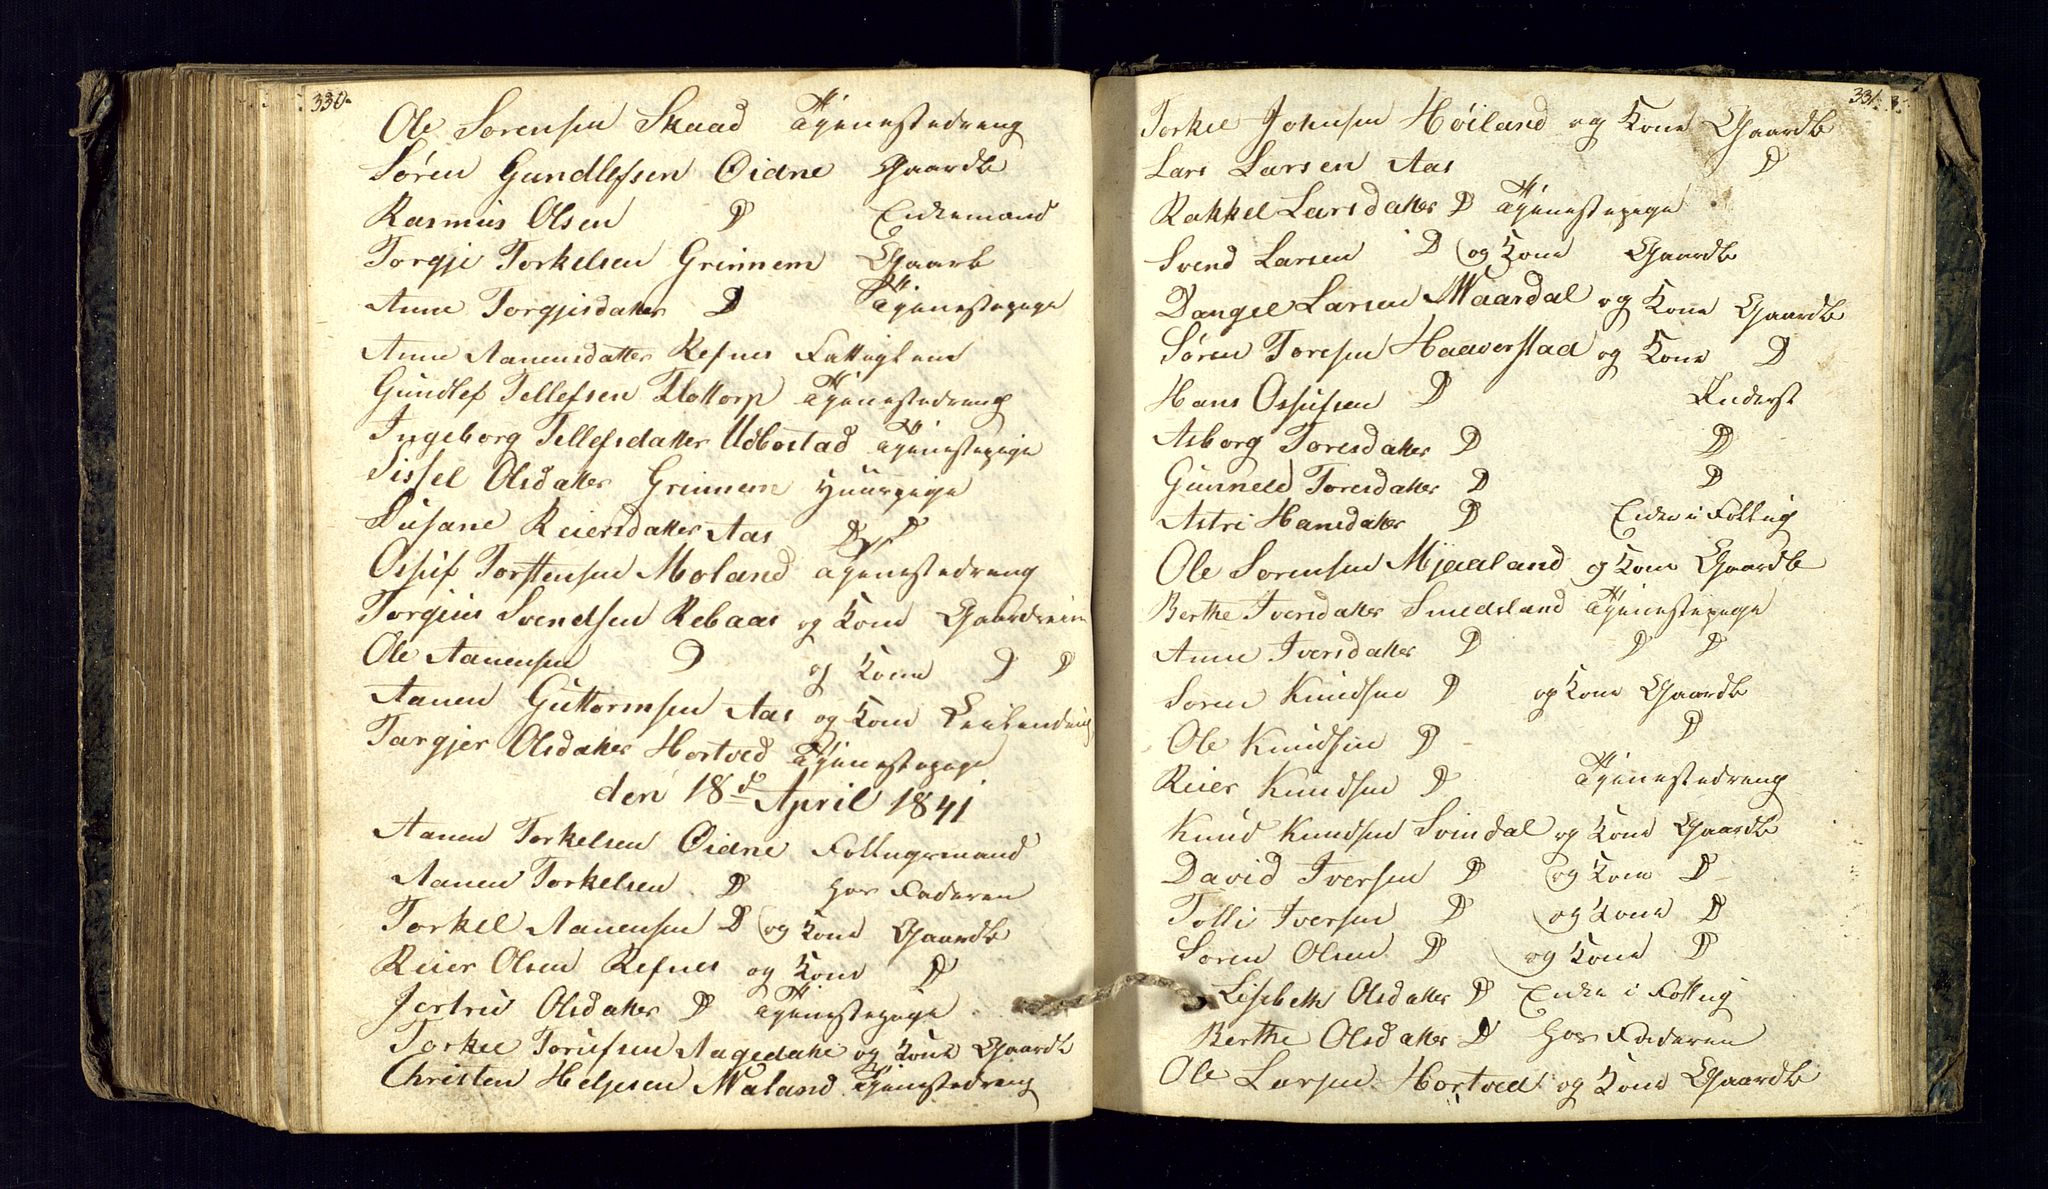 330.
Ole Sørensen Skaad Tjenestedreng
Søren Gundlefsen Øidne Gaardb
Rasmus Olsen D Enkemand
Torgje Torkelsen Grinnem Gaarb
Anne Torgjisdatter D Tjenestepige
Anne Aanensdatter Refnes Fattiglem
Gundlef Tellefsen Flottorp Tjenestedreng
Ingeborg Tellefsdatter Udbostad Tjenestepige
Sissel Olsdatter Grinnem Huuspige
Susane Reiersdatter Aas D D
Ossuf Torstensen Moland Tjenestedreng
Torgius Svendsen Rebaas og Kone
Ole Aanensen D og Kone D D
Aanen Guttormsen Aas og Kone
Targjer Olsdatter Hortved Tjenestepige
den 18de April 1841
Aanen Torkelsen Øidne Follugsmand
Aanen Torkelsen D hos Faderen
Torkel Aanensen D og Kone Gaardb
Reier Olsen Refnes og Kone D
Jertru Olsdatter D Tjenestepige
Torkel Torufsen Aagedahl og Kone Gaardb
Christen Heljesen Maland Tjenestedreng
331.
Torkel Johnsen Høiland og Kone Gaardb
Lars Larsen Aas D
Rakkel Larsdatter D Tjenestepige
Svend Larsen D og Kone Gaardb
Dangel Larsen Waardal og Kone Gaardb
Søren Toresen Haaverstad og Kone D
Hans Ossufsen D Inderst
Asborg Toresdatter D D
Gunneld Toresdatter D D
Astri Hansdatter D Enke i Follug
Ole Sørensen Mjaaland og Kone Gaardb
Berthe Iversdatter Smedsland Tjenestepige
Anne Iversdatter D D D
Søren Knudsen D og Kone Gaardb
Ole Knudsen D D
Reier Knudsen D Tjenestedreng
Knud Knudsen Svindal og Kone Gaardb
David Iversen D og Kone D
Tolli Iversen D og Kone D
Søren Olsen D og Kone D
Lisbeth Olsdatter D Enke i Follug
Berthe Olsdatter D hos Faderen
Ole Larsen Hortved og Kone Gaardb